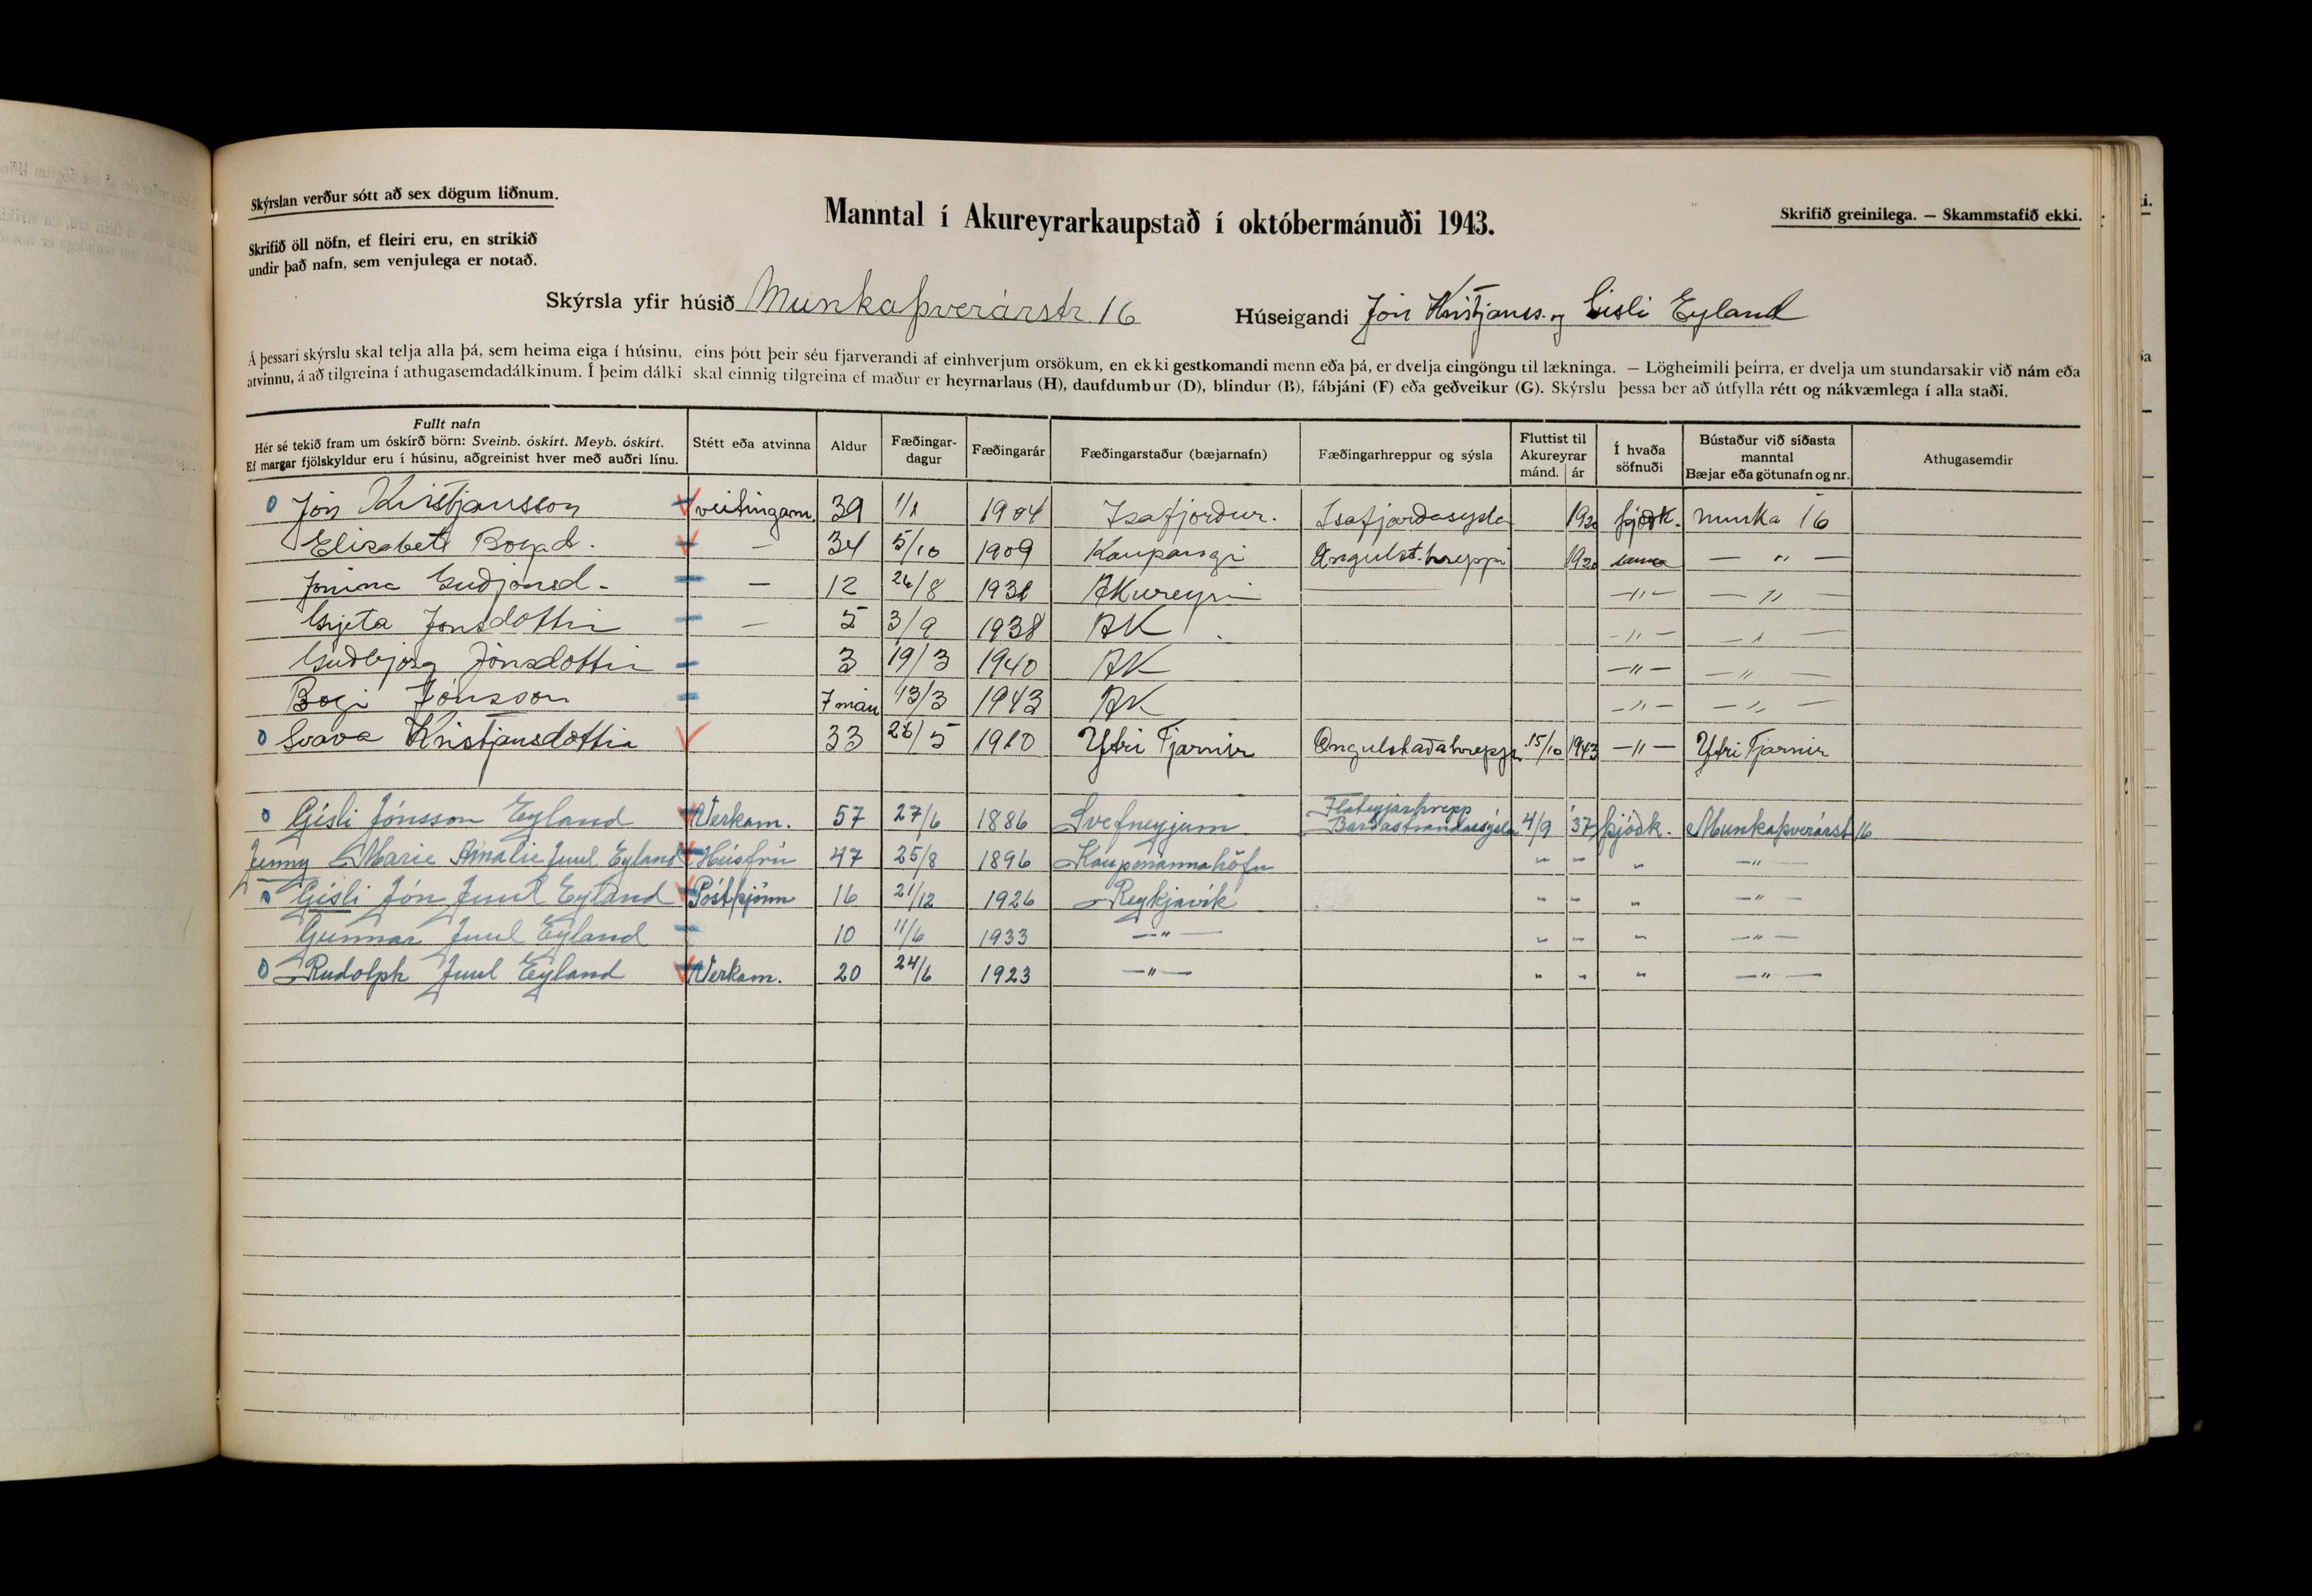 Skýrslan verður sótt að sex dögum liðnum.
Manntal í Akureyrarkaupstað í októbermánuði 1943.
Skrifið greinilega. — Skammstafið ekki.
Skrifið öll nöfn, ef fleiri eru, en strikið
undir það nafn, sem venjulega er notað.
Skýrsla yfir húsið Munkaþverárstr 16 Húseigandi Jón Kristjánss. og Gísli Eyland
Á þessari skýrslu skal telja alla þá, sem heima eiga í húsinu, eins þótt þeir séu fjarverandi af einhverjum orsökum, en ekki gestkomandi menn eða þá, er dvelja eingöngu til lækninga. — Lögheimili þeirra, er dvelja um stundarsakir við nám eða
atvinnu, á að tilgreina í athugasemdadálkinum. Í þeim dálki skal einnig tilgreina ef maður er heyrnarlaus (H), daufdumbur (D), blindur (B), fábjáni (F) eða geðveikur (G). Skýrslu þessa ber að útfylla rétt og nákvæmlega í alla staði.
Fullt nafn
Hér sé tekið fram um óskírð börn: Sveinb. óskírt. Meyb. óskírt.
Ef margar fjölskyldur eru í húsinu, aðgreinist hver með auðri línu.
Stétt eða atvinna
Aldur
Fæðingar-
dagur
Fæðingarár
Fæðingarstaður (bæjarnafn)
Fæðingarhreppur og sýsla
Fluttist til
Akureyrar
mánd. ár
Í hvaða
söfnuði
Bústaður við síðasta
manntal
Bæjar eða götunafn og nr.
Athugasemdir
Jón Kristjansson veitingam. 39 1/1 1904 Isafjordur. Isafjardasysla 192 þjóðk. munka 16
Elisabet Bogad. — 34 5/10 1909 Kaupangi Öngulst.hreppi 192 sama — " —
Jonina Gudjonsd - — 12 26/8 1931 AKureyri — " — — " —
Gréta Jónsdottir — 5 3/9 1938 AK — " — — " —
Gudbjörg Jónsdottir 3 19/3 1940 AK — " — — " —
Bogi Jónsson 7 mán 13/3 1943 AK — " — — " —
Svava Kristjansdottir 33 26/5 1910 Ytri Tjarnir Ongulstaðahreppi 15/10 1943 — " — Ytri Tjarnir
Gísli Jónsson Eyland Verkam. 57 27/6 1886 Svefneyjum Flateyjarhrepp Barðastrandasýsla 4/9 '37 Þjóðk. Munkaþverárst 16
Jenny Marie Amalie Juul Eyland Húsfrú 47 25/8 1896 Kaupmannahöfn " " " — " —
Gísli Jón Juul Eyland Póstþjónn 16 21/12 1926 Reykjavík " " " — " —
Gunnar Juul Eyland 10 11/6 1933 — " — " " " — " —
Rudolph Juul Eyland Verkam. 20 24/6 1923 — " — " " " — " —